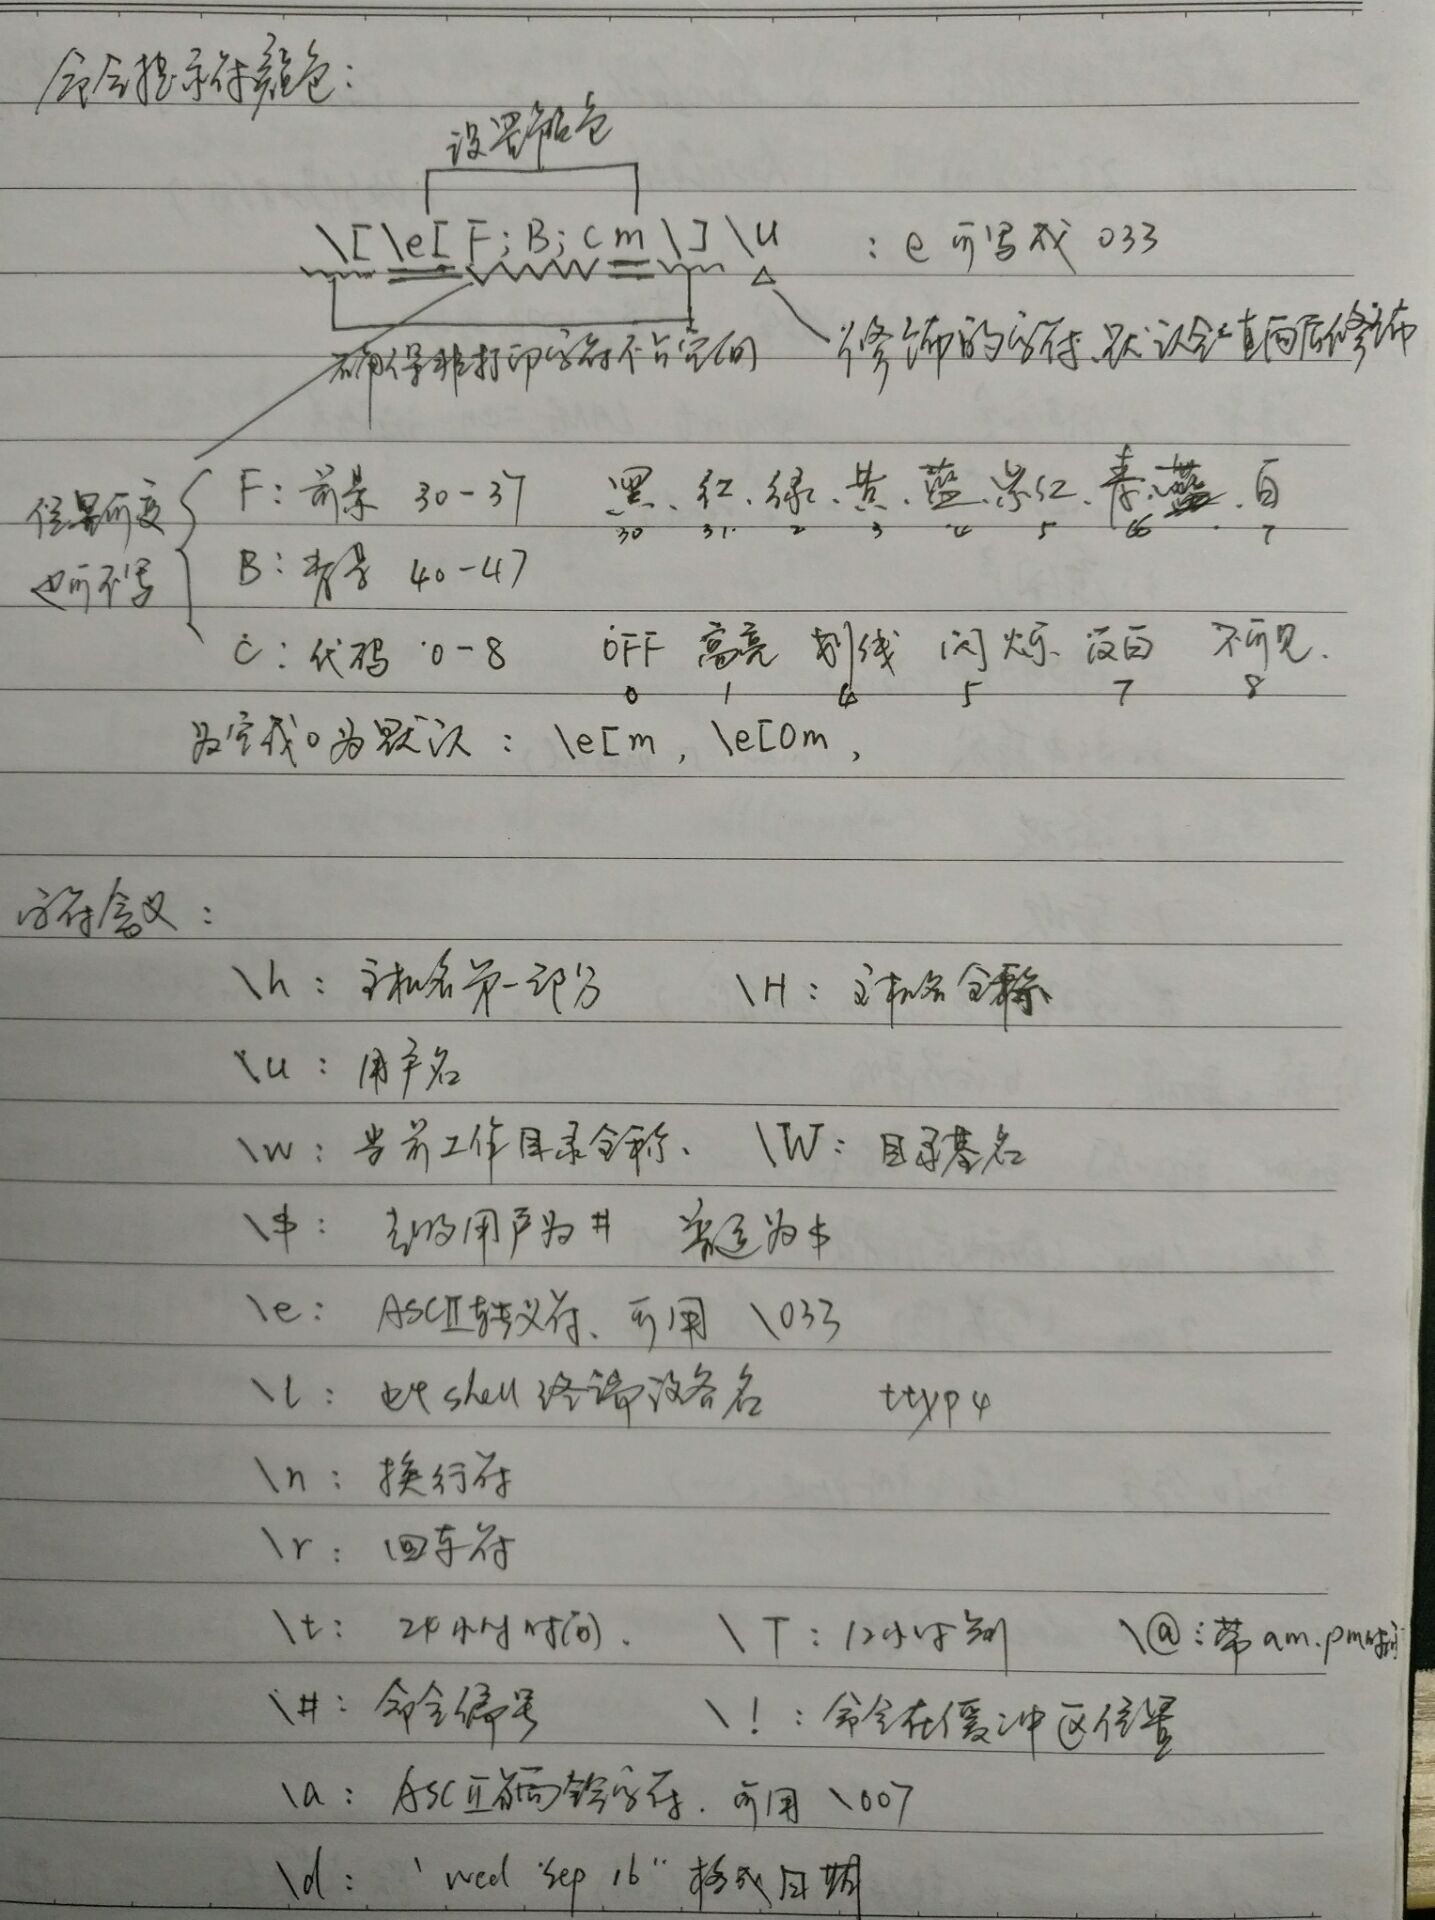 命令提示符颜色：
设置颜色
\[\e[F;B;Cm\]\u ：e可写成033
确保非打印字符不占空间 修饰的字符,默认会一直向后修饰
F：前景 30-37 黑、红、绿、黄、蓝、紫红、青、白
30 31 2 3 4 5 6 7
位置可变
也可不写
B：背景 40-47
C：代码 0-8 OFF 高亮 划线 闪烁 反白 不可见.
0 1 4 5 7 8
为空或0为默认：\e[m , \e[0m ,
字符含义：
\h：主机名第一部分 \H：主机名全称
\u：用户名
\w：当前工作目录全称、 \W：目录基名
\$： 用户为# 普通为$
\e： ASCII转义符、可用 \033
\l： shell 终端设备名 ttyp4
\n：换行符
\r：回车符
\t：24小时时间. \T：12小时制 \@：带am.pm时间
\#：命令编号 \!：命令在缓冲区位置
\a：ASCII响铃字符. 可用 \007
\d：'wed sep 16" 格式日期